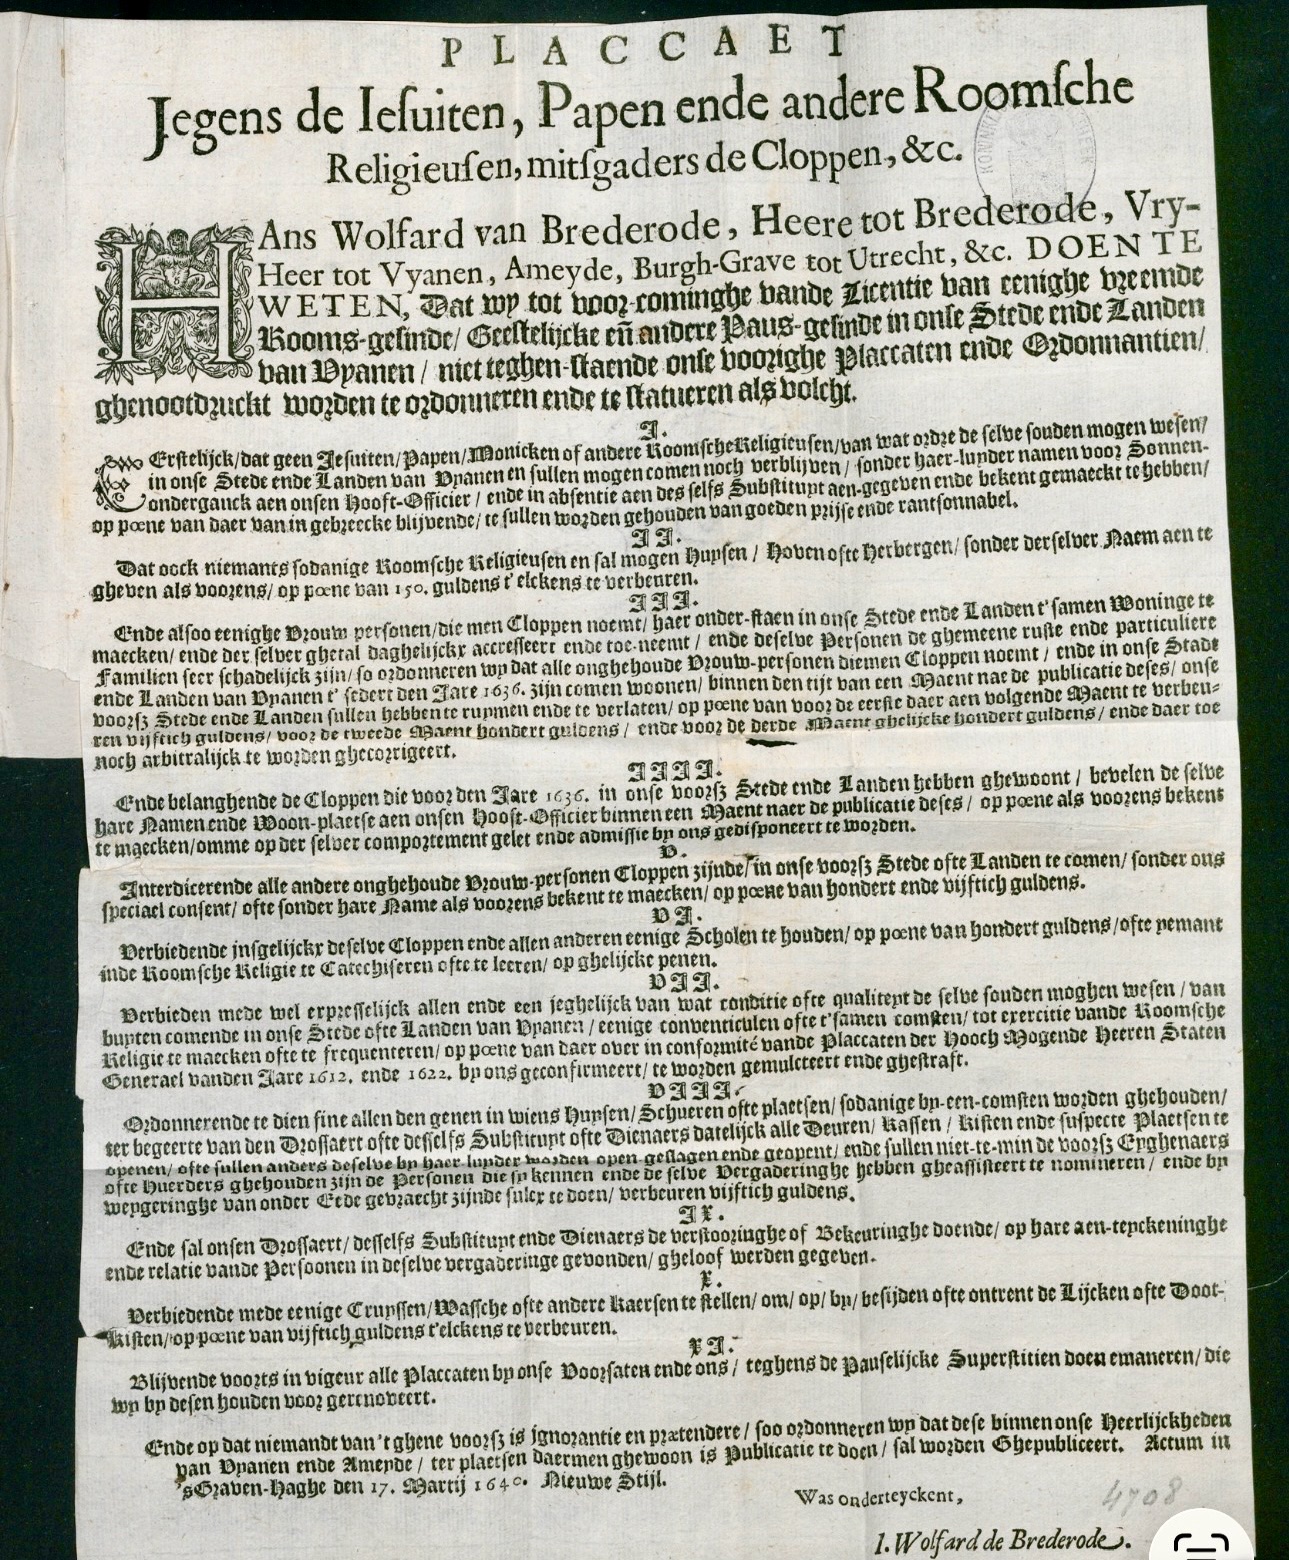 PLACCAET
Jegens de Iesuiten, Papen ende andere Roomsche
Religieusen, mitsgaders de Cloppen, &c.
HAns Wolfard van Brederode, Heere tot Brederode, Vry-
Heer tot Vyanen, Ameyde, Burgh-Grave tot Utrecht, &c. DOEN TE
WETEN, Dat wy tot voor-cominghe vande Licentie van eenighe vreemde
Rooms-gesinde/ Geestelijcke eñ andere Paus-gesinde in onse Stede ende Landen
van Vyanen / niet teghen-staende onse voorighe Placcaten ende Ordonnantien/
ghenootdruckt worden te ordonneren ende te statueren als volcht.
I.
Erstelijck/dat geen Jesuiten/Papen/Monicken of andere Roomsche Religieusen/van wat ordre de selve souden mogen wesen/
in onse Stede ende Landen van Vyanen en sullen mogen comen noch verblijven / sonder haer-luyder namen voor Sonnen-
onderganck aen onsen Hooft-Officier / ende in absentie aen des selfs Substituyt aen-gegeven ende bekent gemaeckt te hebben/
op pœne van daer van in gebreecke blijvende/ te sullen worden gehouden van goeden prijse ende rantsonnabel.
II.
Dat oock niemants sodanige Roomsche Religieusen en sal mogen Huysen / Hoven ofte Herbergen/ sonder derselver Naem aen te
gheven als voorens/ op pœne van 150. guldens t'elckens te verbeuren.
III.
Ende alsoo eenighe Vrouw personen/die men Cloppen noemt/ haer onder-staen in onse Stede ende Landen t'samen Woninge te
maecken/ ende der selver ghetal daghelijckx accresseert ende toe-neemt / ende deselve Personen de ghemeene ruste ende particuliere
Familien seer schadelijck zijn/ so ordonneren wy dat alle onghehoude Vrouw-personen diemen Cloppen noemt / ende in onse Stade
ende Landen van Vyanen t'sedert den Jare 1636. zijn comen woonen/ binnen den tijt van een Maent nae de publicatie deses/ onse
voorsz Stede ende Landen sullen hebben te ruymen ende te verlaten/ op pœne van voor de eerste daer aen volgende Maent te verbeu-
ren vijftich guldens/ voor de tweede Maent hondert guldens / ende voor de derde Maent ghelijcke hondert guldens/ ende daer toe
noch arbitralijck te worden ghecorrigeert.
IIII.
Ende belanghende de Cloppen die voor den Jare 1636. in onse voorsz Stede ende Landen hebben ghewoont / bevelen de selve
hare Namen ende Woon-plaetse aen onsen Hooft-Officier binnen een Maent naer de publicatie deses / op pœne als voorens bekent
te maecken/omme op der selver comportement gelet ende admissie by ons gedisponeert te worden.
V.
Interdicerende alle andere onghehoude Vrouw-personen Cloppen zijnde/in onse voorsz Stede ofte Landen te comen/ sonder ons
speciael consent/ ofte sonder hare Name als voorens bekent te maecken/ op pœne van hondert ende vijftich guldens.
VI.
Verbiedende insgelijckx deselve Cloppen ende allen anderen eenige Scholen te houden/ op pœne van hondert guldens /ofte yemant
inde Roomsche Religie te Catechiseren ofte te leeren/ op ghelijcke penen.
VII.
Verbieden mede wel expresselijck allen ende een jeghelijck van wat conditie ofte qualiteyt de selve souden moghen wesen / van
buyten comende in onse Stede ofte Landen van Vyanen / eenige conventiculen ofte t'samen comsten/ tot exercitie vande Roomsche
Religie te maecken ofte te frequenteren/ op pœne van daer over in conformité vande Placcaten der Hooch Mogende Heeren Staten
Generael vanden Jare 1612. ende 1622. by ons geconfirmeert/ te worden gemulcteert ende ghestraft.
VIII.
Ordonnerende te dien fine allen den genen in wiens Huysen/ Schueren ofte plaetsen/ sodanige by-een-comsten worden ghehouden/
ter begeerte van den Drossaert ofte desselfs Substituyt ofte Dienaers datelijck alle Deuren/ Kassen / Kisten ende suspecte Plaetsen te
openen/ ofte sullen anders deselve by haer-luyder worden open geslagen ende geopent/ ende sullen niet-te-min de voorsz Eyghenaers
ofte Huerders ghehouden zijn de Personen die sy kennen ende de selve Vergaderinghe hebben gheassisteert te nomineren / ende by
weygeringhe van onder Eede gevraecht zijnde sulcx te doen/ verbeuren vijftich guldens.
IX.
Ende sal onsen Drossaert/ desselfs Substituyt ende Dienaers de verstooringhe of Bekeuringhe doende/ op hare aen-teyckeninghe
ende relatie vande Persoonen in deselve vergaderinge gevonden/ gheloof werden gegeven.
X.
Verbiedende mede eenige Cruyssen/Wassche ofte andere Kaersen te stellen/ om/ op/ by/ besijden ofte ontrent de Lijcken ofte Doot-
kisten/op pœne van vijftich guldens t'elckens te verbeuren.
XI.
Blijvende voorts in vigeur alle Placcaten by onse Voorsaten ende ons / teghens de Pauselijcke Superstitien doen emaneren/ die
wy by desen houden voor gerenoveert.
Ende op dat niemandt van 't ghene voorsz is ignorantie en prætendere / soo ordonneren wy dat dese binnen onse Heerlijckheden
van Vyanen ende Ameyde / ter plaetsen daermen ghewoon is Publicatie te doen / sal worden Ghepubliceert. Actum in
'sGraven-Haghe den 17. Martij 1640. Nieuwe Stijl.
Was onderteyckent,
4708
I. Wolfard de Brederode.